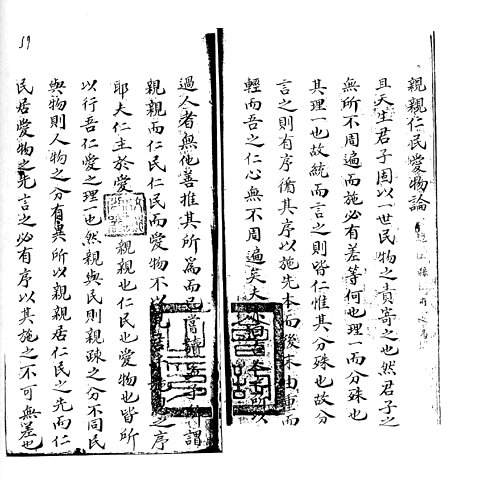 親親仁民愛物論
且天生君子固以一世民物之責寄之也然君子之
無所不周遍而施必有差等何也理一而分殊也
其理一也故統而言之則皆仁惟其分殊也故分
言之則有序循其序以施先本而後末由重而
輕而吾之仁心無不周遍矣夫
過人者無他善推其所為而已嘗讀孟子謂
親親而仁民仁民而愛物不以 之序
耶夫仁主於愛 親親也仁民也愛物也皆所
以行吾仁愛之理一也然親與民則親踈之分不同民
與物則人物之分有異所以親親居仁民之先而仁
民居愛物之先言之必有序以其施之不可無差也
59